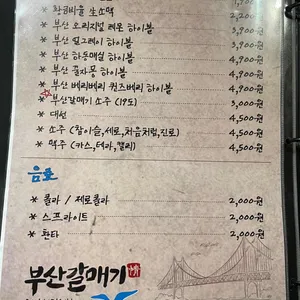 * 황금비율 生소맥 2,200원
* 부산 오리지널 레몬 하이볼 3,900원
* 부산 얼그레이 하이볼 4,900원
* 부산 하동매실 하이볼 4,900원
* 부산 꿀자몽 하이볼 4,900원
* 부산 베리베리 퀸즈베리 하이볼 4,900원
* 부산갈매기 소주 (19도) 3,000원
* 대선 4,500원
* 소주 (참이슬,새로,처음처럼,진로) 4,500원
* 맥주 (카스,테라,켈리) 4,500원
음료
* 콜라 / 제로콜라 2,000원
* 스프라이트 2,000원
* 환타 2,000원
부산갈매기